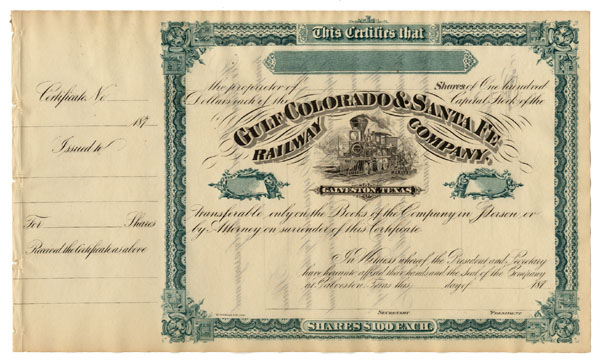 Certificate No
187
Issued to
For Shares
Received the Certificate as above
This Certifies that
the proprietor of Shares of One hundred
Dollars each of the Capital Stock of the
GULF COLORADO & SANTA FE
RAILWAY COMPANY.
GALVESTON TEXAS
transferable only on the Books of the Company in Person or
by Attorney on surrender of this Certificate
In Witness whereof the President and Secretary
have hereunto affixed their hands and the seal of the Company
at Galveston, Texas this day of 187
SECRETARY PRESIDENT
SHARES $100 EACH.